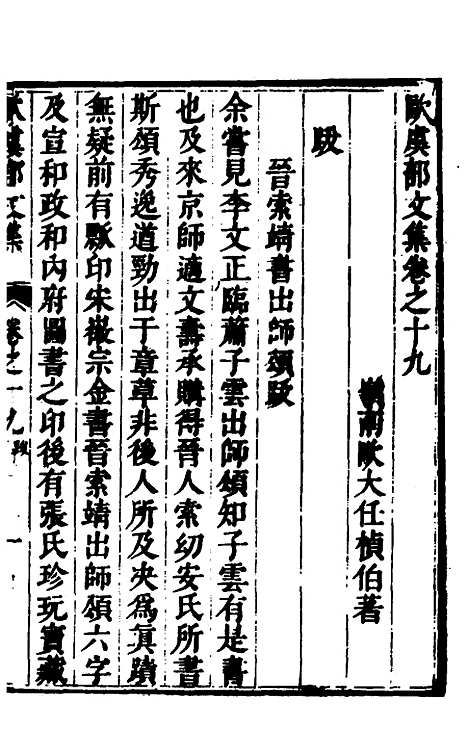 歐虞部文集卷之十九
嶺南歐大任楨伯著
跋
晉索靖書出師頌跋
余嘗見李文正臨蕭子雲出師頌知子雲有是書
也及來京師適文壽承購得晉人索幼安氏所書
斯頌秀逸遒勁出于章草非後人所及夾爲眞蹟
無疑前有瓢印宋徽宗金書晉索靖出師頌六字
及宣和政和內府圖書之印後有張氏珍玩寶藏
歐虞部文集 卷之十九 跋 一